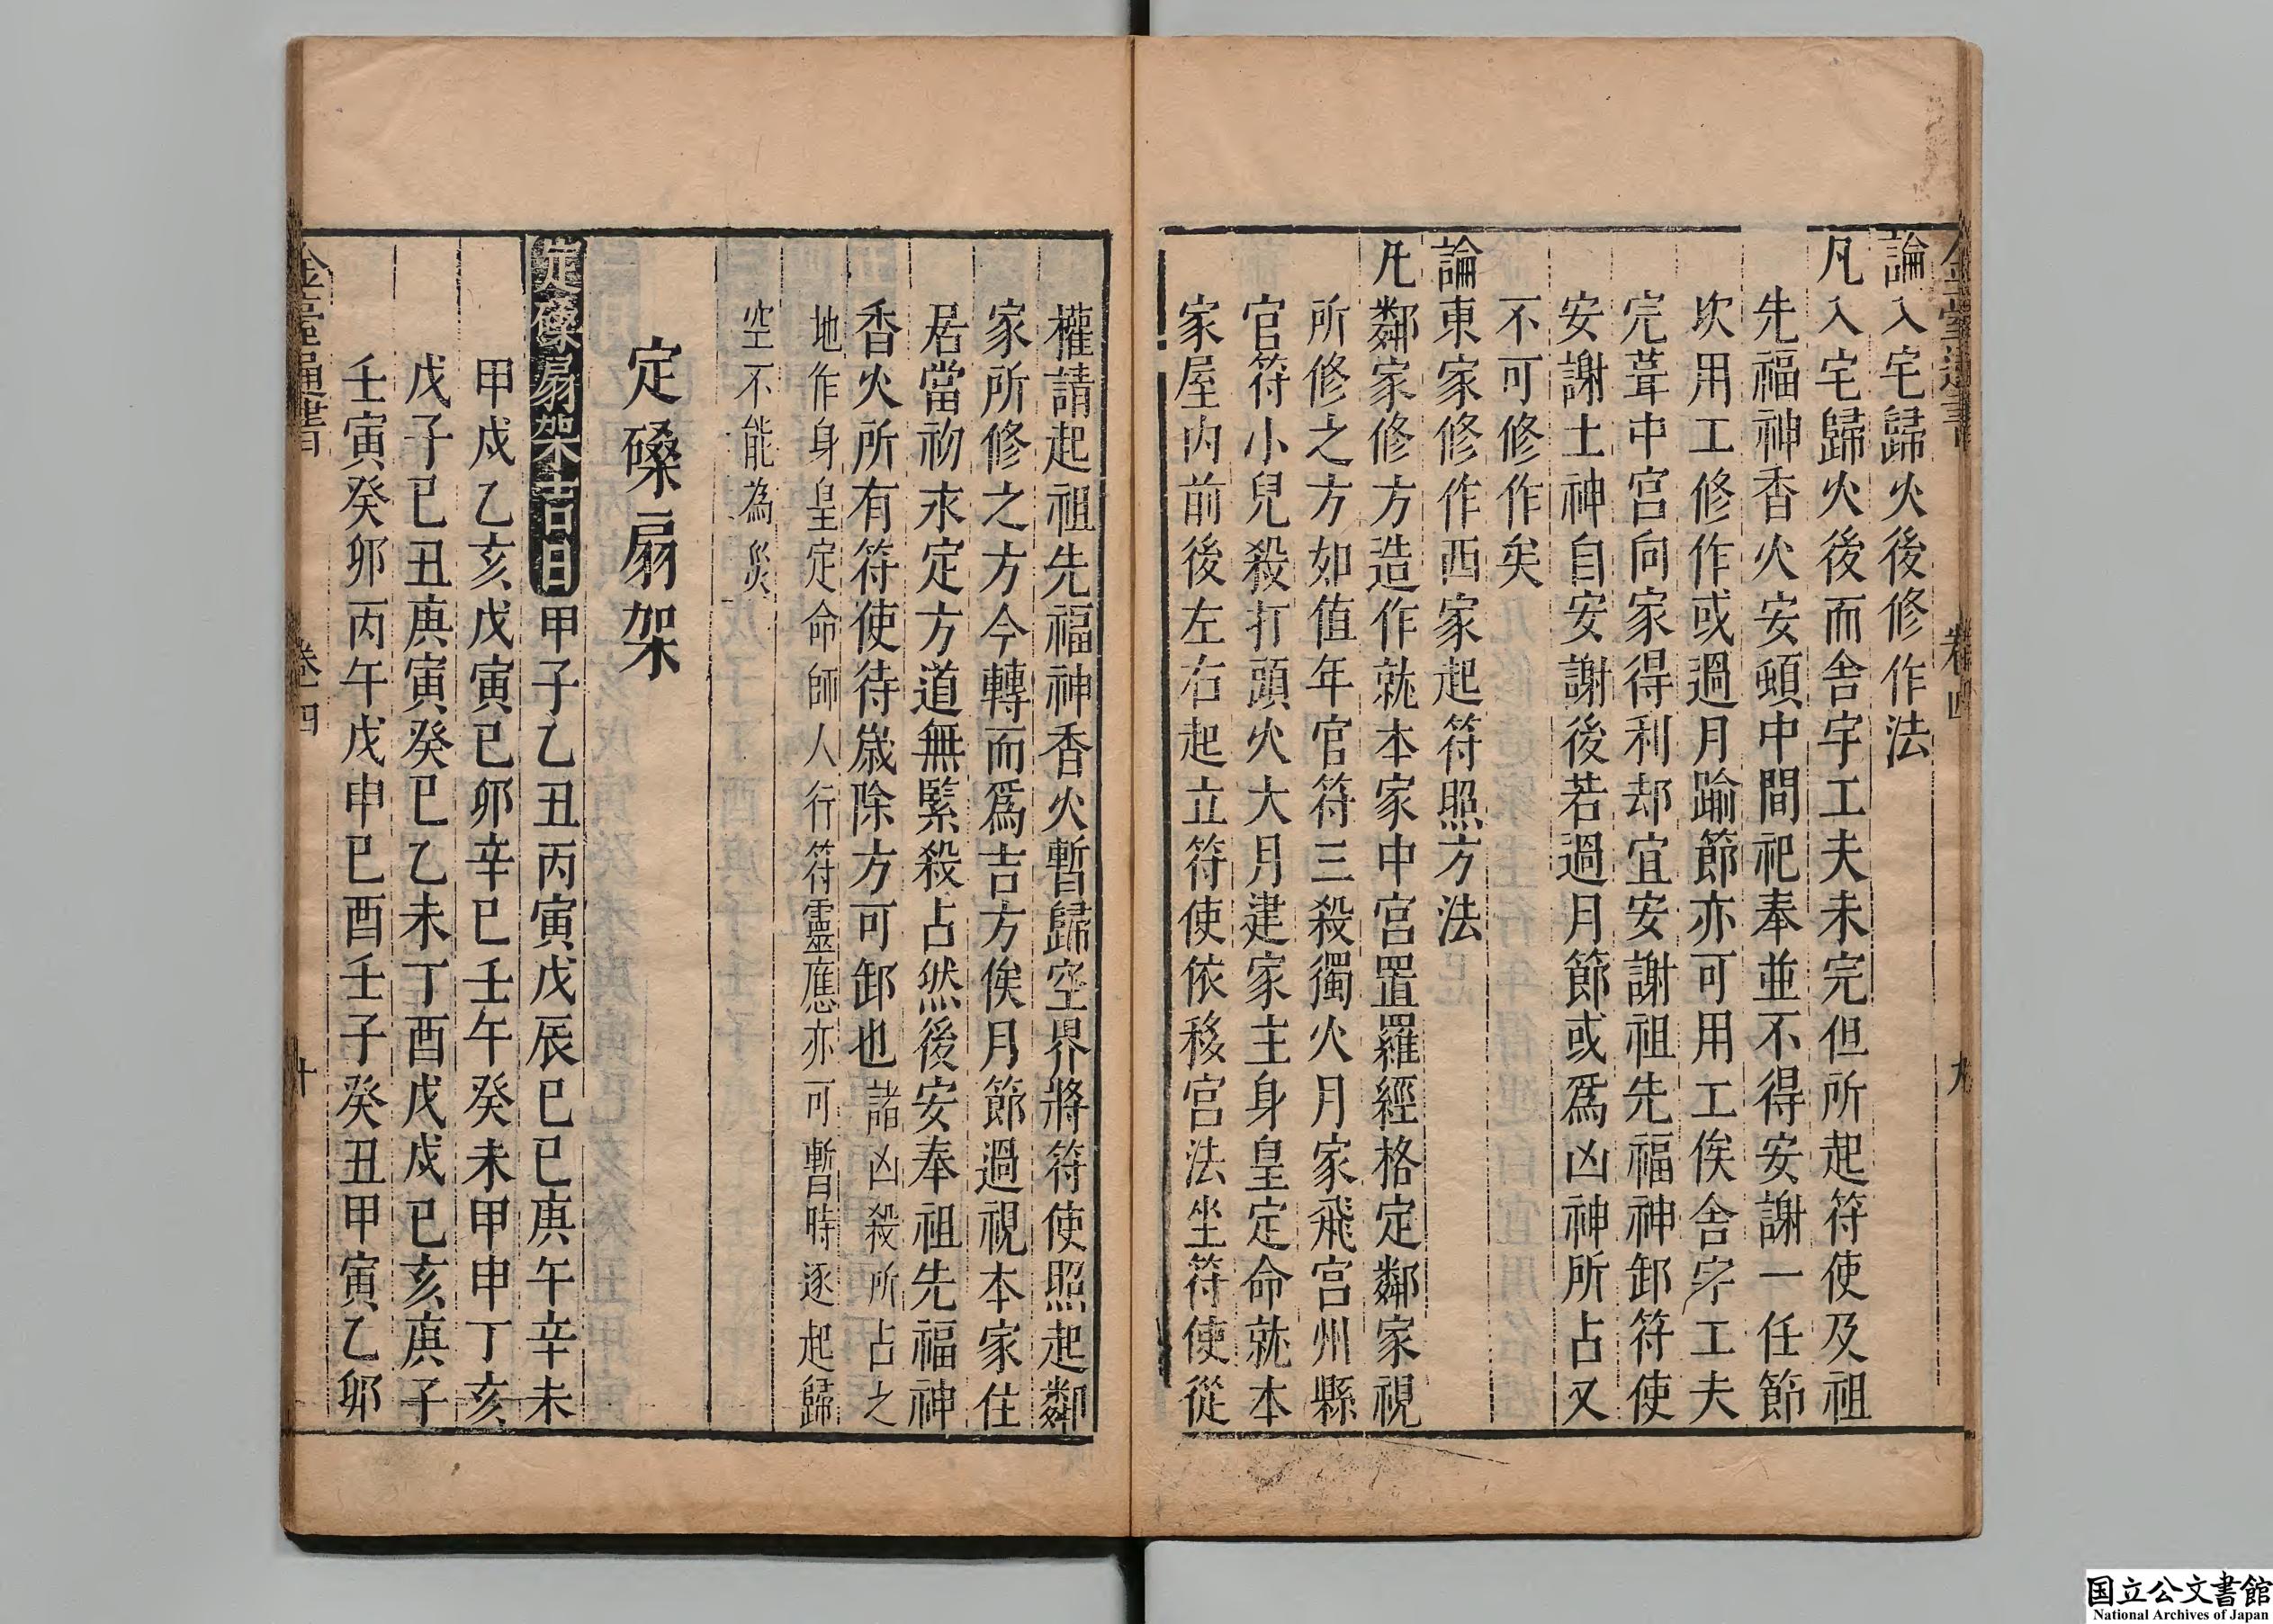 論入宅歸火後修作法
凡入宅歸火後而舍宇工夫未完但所起符使及祖
先福神香火安頓中間祀奉並不得安謝一任節
次用工修作或過月踰節亦可用工俟舍宇工夫
完葺中宮向家得利却宜安謝祖先福神卸符使
安謝土神自安謝後若過月節或爲凶神所占又
不可修作矣
論東家修作西家起符照方法
凡鄰家修方造作就本家中宮置羅經格定鄰家視
所修之方如值年官符三殺獨火月家飛宮州縣
官符小兒殺打頭火大月建家主身皇定命就本
家屋內前後左右起立符使依移宮法坐符使從
權請起祖先福神香火暫歸空界將符使照起鄰
家所修之方今轉而爲吉方俟月節過視本家住
居當初永定方道無緊殺占然後安奉祖先福神
香火所有符使待歲除方可卸也諸凶殺所占之
地作身皇定命師人行符靈應亦可暫時逐起歸
空不能為災
定磉扇架
定磉扇架吉日甲子乙丑丙寅戊辰己巳庚午辛未
甲戌乙亥戊寅己卯辛巳壬午癸未甲申丁亥
戊子己丑庚寅癸巳乙未丁酉戊戌己亥庚子
壬寅癸卯丙午戊申己酉壬子癸丑甲寅乙卯
卷四
九
卷四
十
国立公文書館
National Archives of Japan